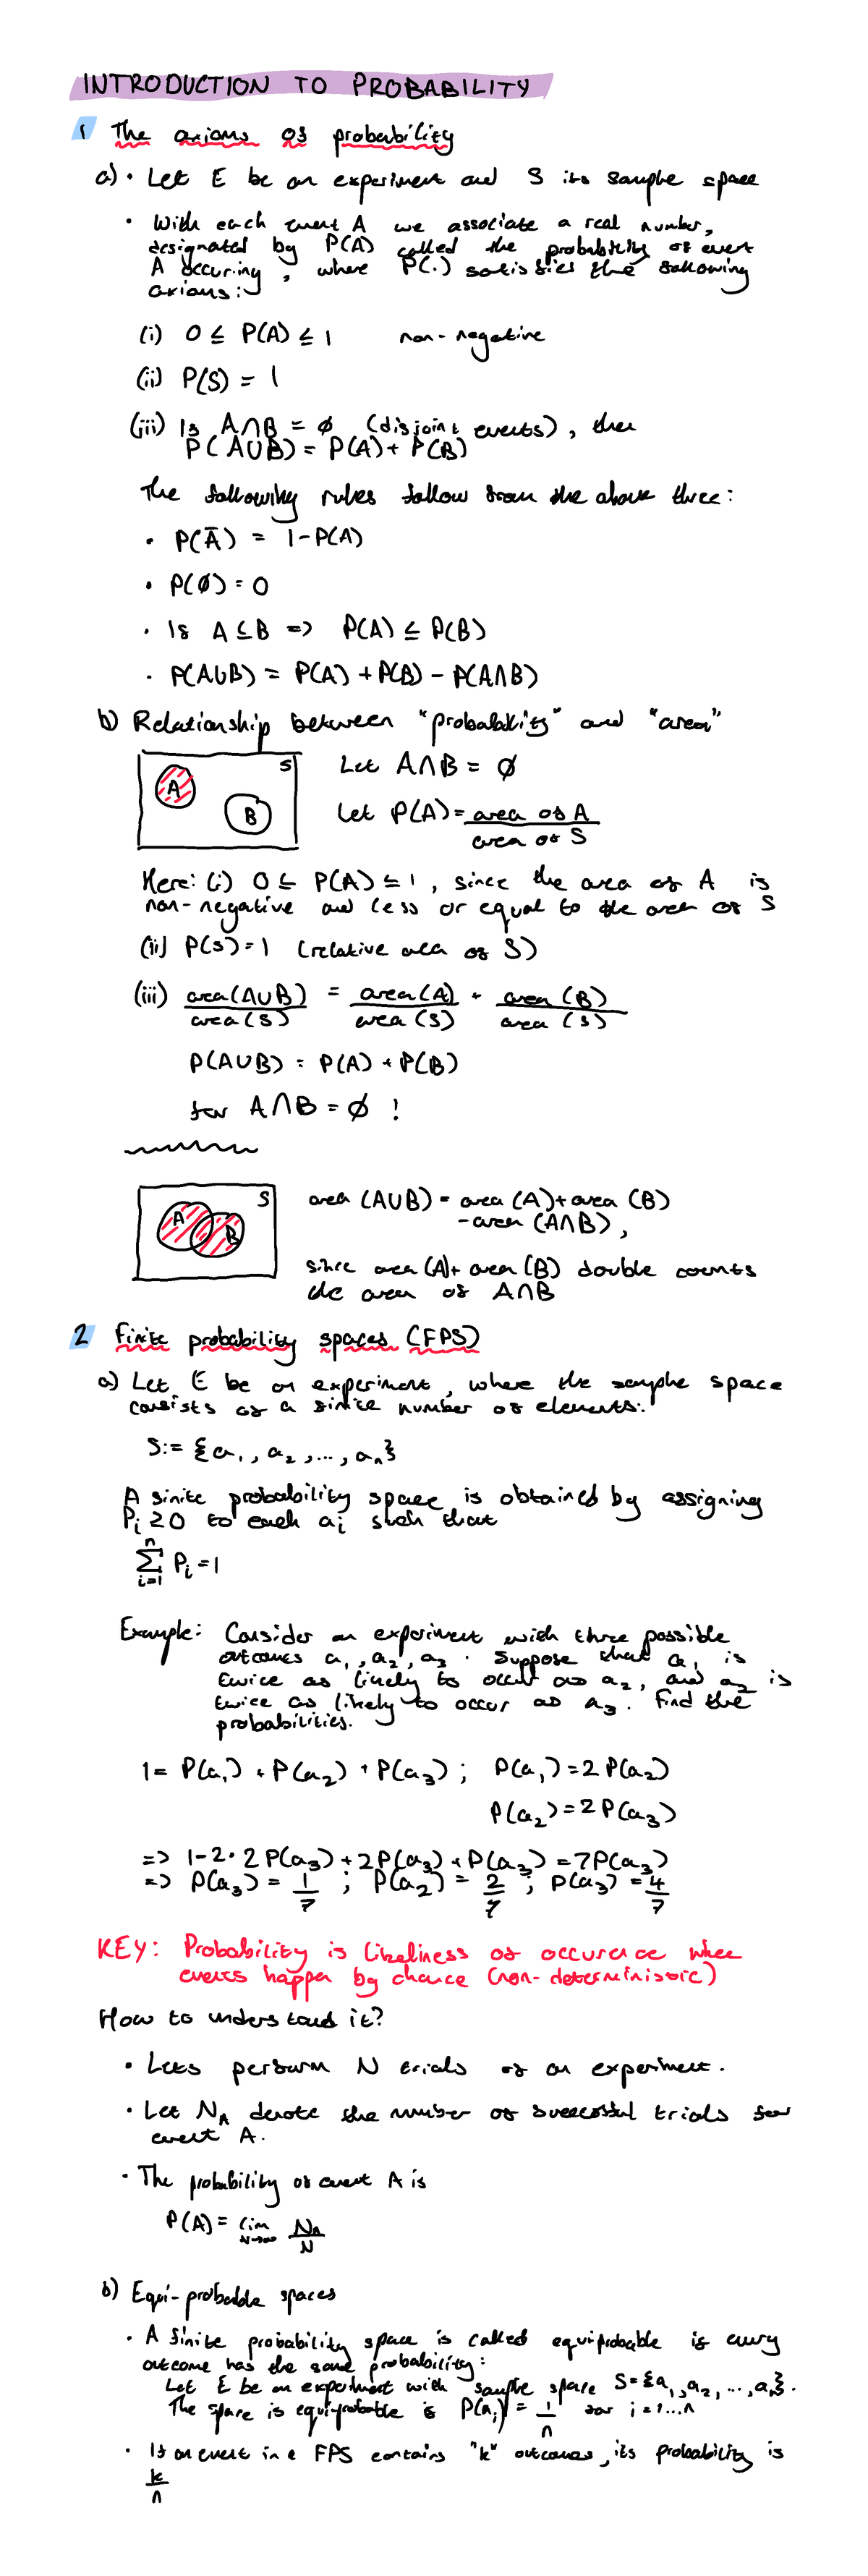 INTRODUCTION TO PROBABILITY
1 The axioms of probability
a) • Let E be an experiment and S its sample space
• With each event A we associate a real number,
designated by P(A) called the probability of event
A occuring, where P(.) satisfies the following
axioms:
(i) 0 ≤ P(A) ≤ 1 non-negative
(ii) P(S) = 1
(iii) If A∩B = ∅ (disjoint events), then
P(A∪B) = P(A) + P(B)
The following rules follow from the above three:
• P(Ā) = 1-P(A)
• P(∅) = 0
• If A⊆B => P(A) ≤ P(B)
• P(A∪B) = P(A) + P(B) - P(A∩B)
b) Relationship between "probability" and "area"
S
A
B
Let A∩B = ∅
Let P(A) = area of A / area of S
Here: (i) 0 ≤ P(A) ≤ 1, since the area of A is
non-negative and less or equal to the area of S
(ii) P(S) = 1 (relative area of S)
(iii) area(A∪B)/area(S) = area(A)/area(S) + area(B)/area(S)
P(A∪B) = P(A) + P(B)
for A∩B = ∅ !
S
A
B
area (A∪B) = area (A) + area (B)
- area (A∩B),
since area (A) + area (B) double counts
the area of A∩B
2 Finite probability spaces (FPS)
a) Let E be an experiment, where the sample space
consists of a finite number of elements:
S:= {a₁, a₂, ..., aₙ}
A finite probability space is obtained by assigning
Pᵢ ≥ 0 to each aᵢ such that
∑ᵢ₌₁ⁿ Pᵢ = 1
Example: Consider an experiment with three possible
outcomes a₁, a₂, a₃. Suppose that a₁ is
twice as likely to occur as a₂, and a₂ is
twice as likely to occur as a₃. Find the
probabilities.
1 = P(a₁) + P(a₂) + P(a₃) ; P(a₁) = 2P(a₂)
P(a₂) = 2P(a₃)
=> 1 = 2·2P(a₃) + 2P(a₃) + P(a₃) = 7P(a₃)
=> P(a₃) = 1/7 ; P(a₂) = 2/7 ; P(a₃) = 4/7
KEY: Probability is likeliness of occurence when
events happen by chance (non-deterministic)
How to understand it?
• Lets perform N trials of an experiment.
• Let N_A denote the number of successful trials for
event A.
• The probability of event A is
P(A) = lim N→∞ N_A/N
b) Equi-probable spaces
• A finite probability space is called equiprobable if every
outcome has the same probability:
Let E be an experiment with sample space S = {a₁, a₂, ..., aₙ}.
The space is equi-probable if P(aᵢ) = 1/n for i = 1...n
• If an event in a FPS contains "k" outcomes, its probability is
k/n